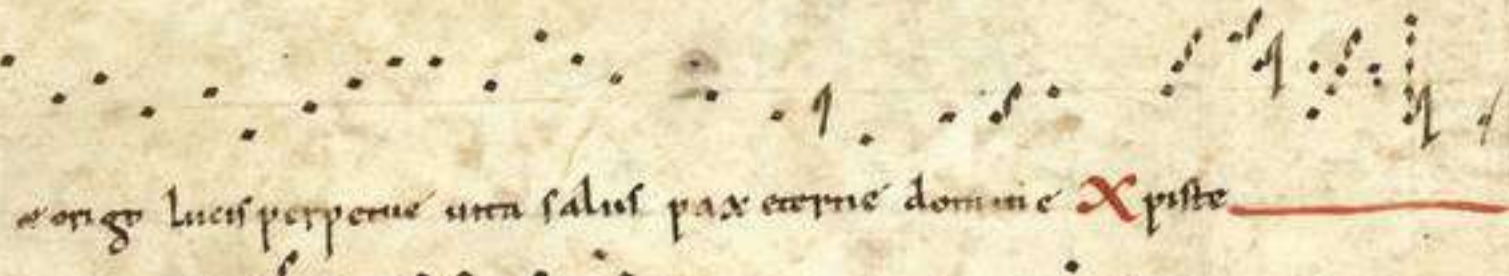 et origo lucis perpetue uita salus pax eterne domine Xpiste